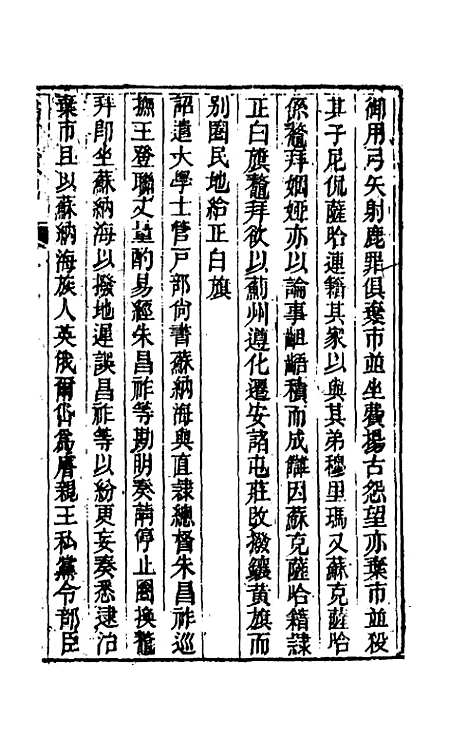 御用弓矢射鹿罪俱棄市並坐費揚古怨望亦棄市並殺
其子尼侃薩哈連籍其家以與其弟穆里瑪又蘇克薩哈
係鰲拜姻婭亦以論事齟齬積而成讎因蘇克薩哈籍隸
正白旗鰲拜欲以薊州遵化遷安諸屯莊改撥鑲黃旗而
别圈民地給正白旗
詔遣大學士管戸部尙書蘇納海與直隷總督朱昌祚巡
撫王登聯丈量酌易經朱昌祚等勘明奏請停止圈換鰲
拜卽坐蘇納海以撥地遲誤昌祚等以紛更妄奏悉逮治
棄市且以蘇納海族人英俄爾岱爲睿親王私黨令部臣